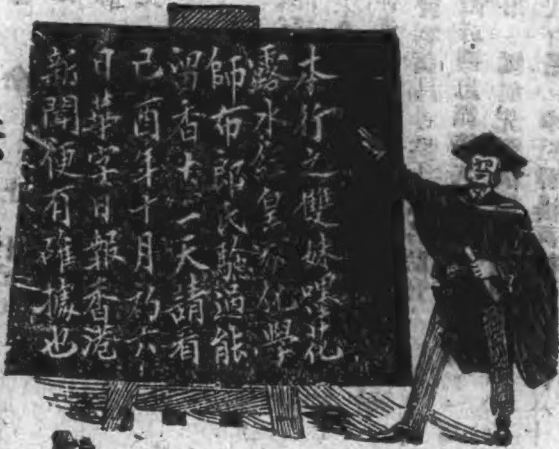 本行之雙妹嘜花
露水茲皇家化學
師布郎氏驗過能
留香十一天請看
己酉年十月初六
日華字日報香港
新聞便有確據也